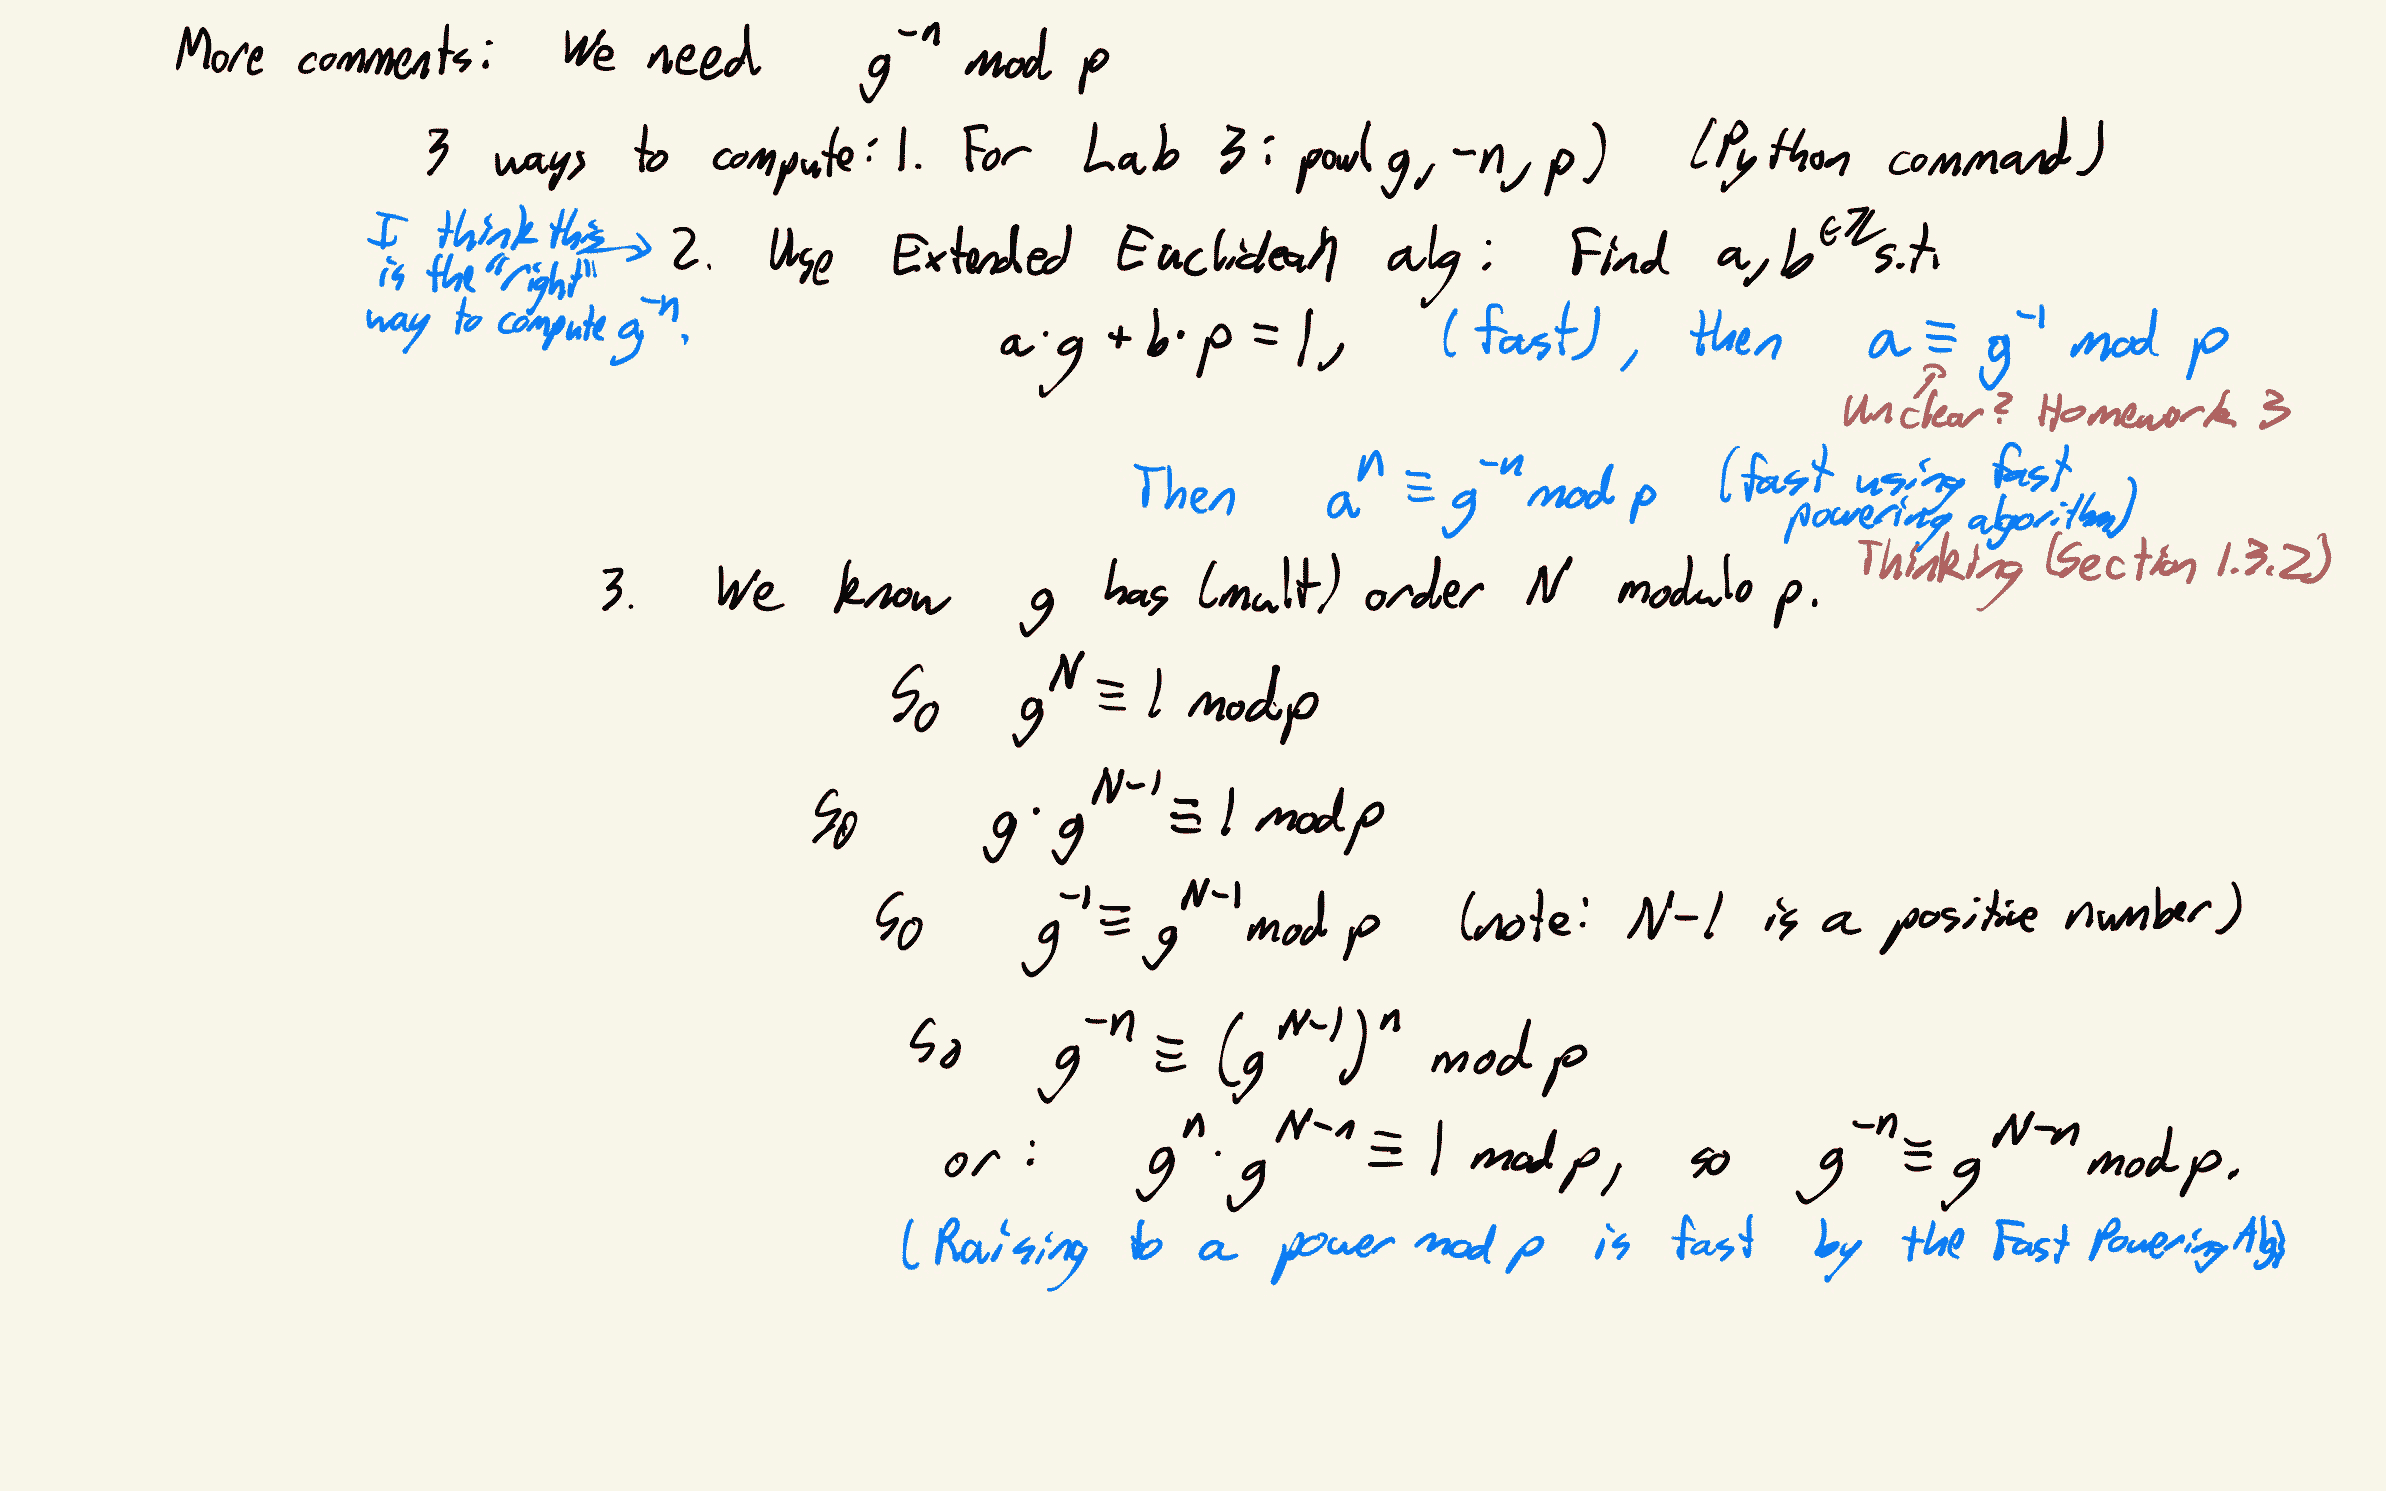 More comments: We need g^{-n} mod p
3 ways to compute: 1. For Lab 3: pow(g, -n, p) (Python command)
I think this
is the "right"
way to compute g^{-n}.
→ 2. Use Extended Euclidean alg: Find a, b ∈ℤ s.t.
a·g + b·p = 1, (fast), then a ≡ g^{-1} mod p
Unclear? Homework 3
Then a^n ≡ g^{-n} mod p (fast using fast
powering algorithm)
Thinking (Section 1.3.2)
3. We know g has (mult) order N modulo p.
So g^N ≡ 1 mod p
So g · g^{N-1} ≡ 1 mod p
So g^{-1} ≡ g^{N-1} mod p (note: N-1 is a positive number)
So g^{-n} ≡ (g^{N-1})^n mod p
or: g^n · g^{N-n} ≡ 1 mod p, so g^{-n} ≡ g^{N-n} mod p.
(Raising to a power mod p is fast by the Fast Powering Alg)